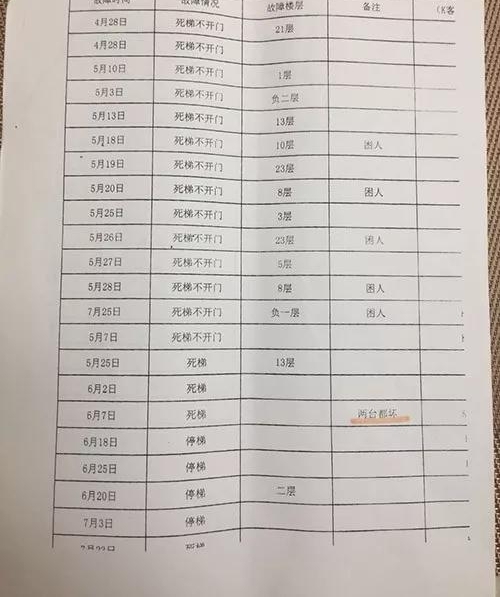 故障时间 故障情况 故障楼层 备注 (K客
4月28日 死梯不开门 21层
4月28日 死梯不开门
5月10日 死梯不开门 1层
5月3日 死梯不开门 负二层
5月13日 死梯不开门 13层
5月18日 死梯不开门 10层 困人
5月19日 死梯不开门 23层
5月20日 死梯不开门 8层 困人
5月25日 死梯不开门 3层
5月26日 死梯不开门 23层 困人
5月27日 死梯不开门 5层
5月28日 死梯不开门 8层 困人
7月25日 死梯不开门 负一层 困人
5月7日 死梯不开门
5月25日 死梯 13层
6月2日 死梯
6月7日 死梯 两台都坏
6月18日 停梯
6月25日 停梯
6月20日 停梯 二层
7月3日 停梯